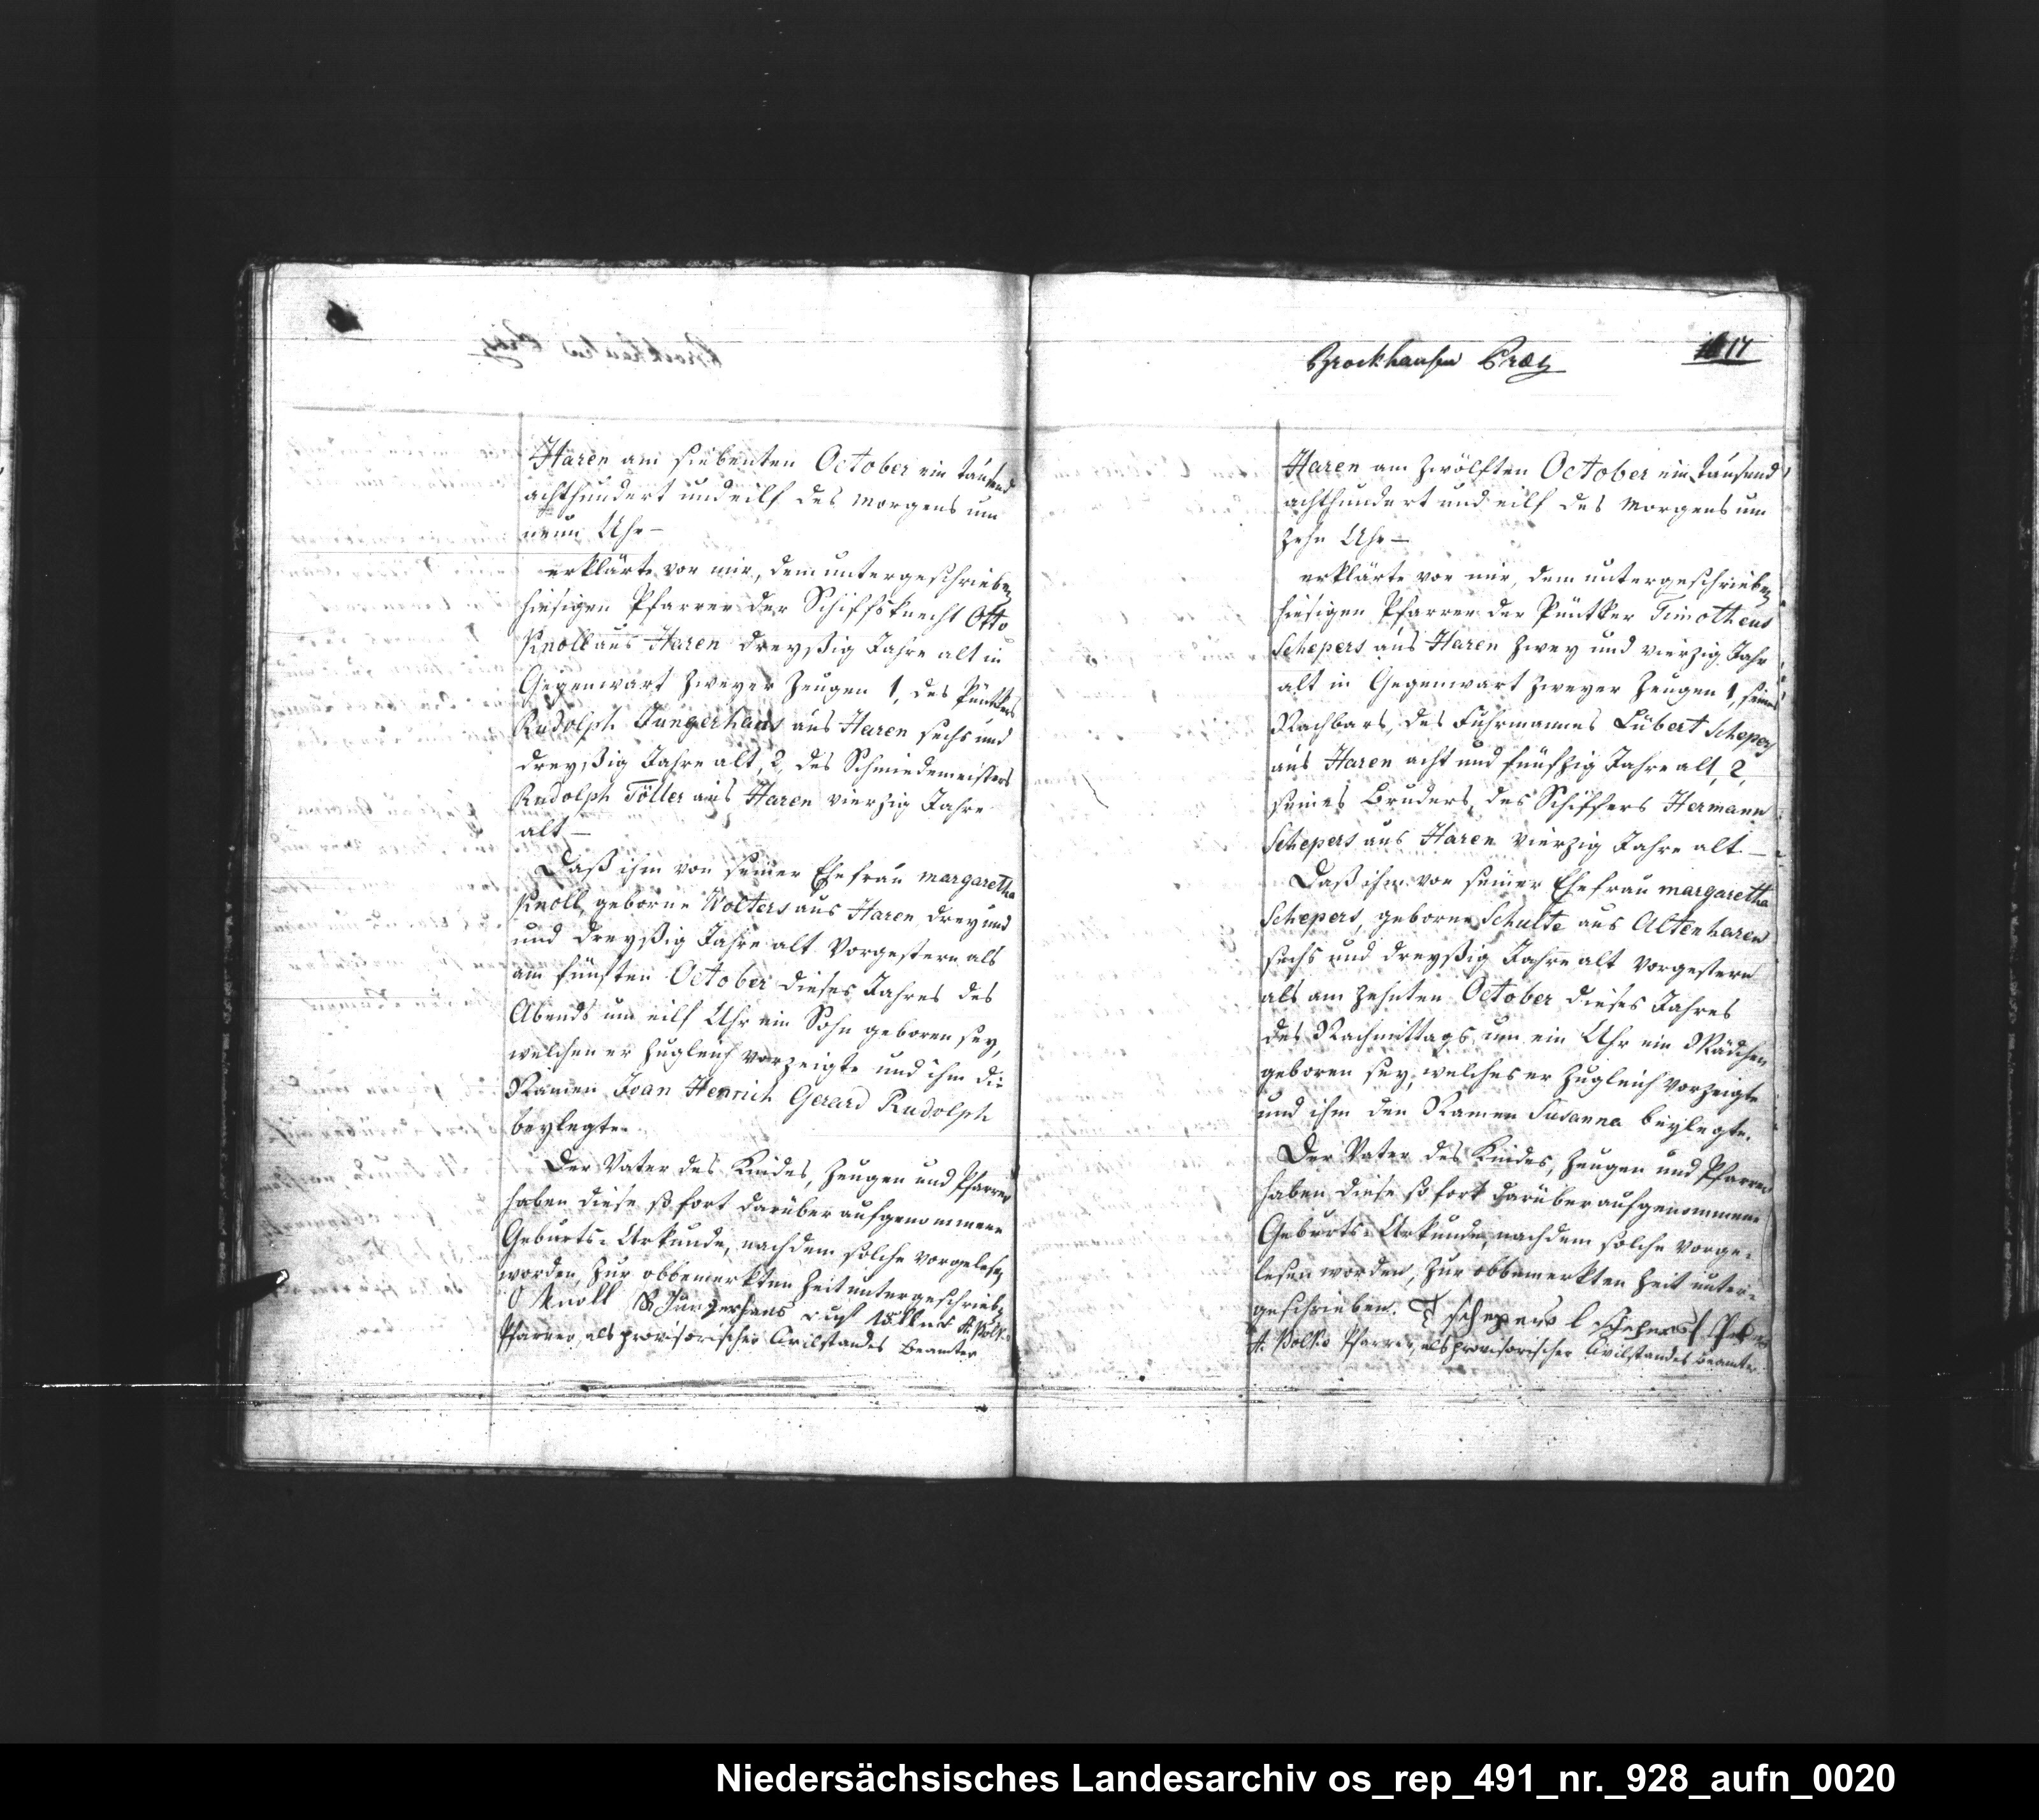 Haren am siebenten October ein tausend
achthundert und eilf des Morgens um
neun Uhr —
erklärte vor mir, dem untergeschrieben
hiesigen Pfarrer der Schiffsknecht Otto
Knoll aus Haren dreyßig Jahre alt in
Gegenwart zweyer Zeugen 1, des Püntkers
Rudolph Jungerhans aus Haren sechs und
dreyßig Jahre alt, 2, des Schmiedemeisters
Rudolph Töller aus Haren vierzig Jahre
alt —
Daß ihm von seiner Ehefrau Margaretha
Knoll, geborne Wolters aus Haren drey und
und dreyßig Jahre alt vorgestern als
am fünften October dieses Jahres des
Abends um eilf Uhr ein Sohn geboren sey,
welchen er zugleich vorzeigte und ihm die
Namen Joan Henrich Gerard Rudolph
beylegte.
Der Vater des Kindes, Zeugen und Pfarrer
haben diese so fort darüber aufgenommene
Geburts-Urkunde, nachdem solche vorgelesen
worden, zur obbemerkten Zeit untergeschrieben
O Knoll R Jungerhans
Pfarrer, als provisorischer Civilstandes Beamter
17
Brockhausen
Haren am zwölften October ein tausend
achthundert und eilf des Morgens um
zehn Uhr —
erklärte vor mir, dem untergeschrieben
hiesigen Pfarrer der Püntker Timotheus
Schepers aus Haren zwey und vierzig Jahr
alt in Gegenwart zweyer Zeugen 1, seines
Nachbars, des Fuhrmannes Lübert Schepers
aus Haren acht und fünfzig Jahre alt, 2,
seines Bruders, des Schiffers Hermann
Schepers aus Haren vierzig Jahre alt. —
Daß ihm von seiner Ehefrau Margaretha
Schepers, geborne Schulte aus Altenharen
sechs und dreyßig Jahre alt vorgestern
als am zehnten October dieses Jahres
des Nachmittags um ein Uhr ein Mädchen
geboren sey, welches er zugleich vorzeigte
und ihm den Namen Susanna beylegte.
Der Vater des Kindes, Zeugen und Pfarrer
haben diese so fort darüber aufgenommene
Geburts-Urkunde, nachdem solche vorge-
lesen worden, zur obbemerkten Zeit unter-
geschrieben. T schepers l schepers
Pfarrer, als provisorischer Civilstandes Beamter
Niedersächsisches Landesarchiv os_rep_491_nr._928_aufn_0020